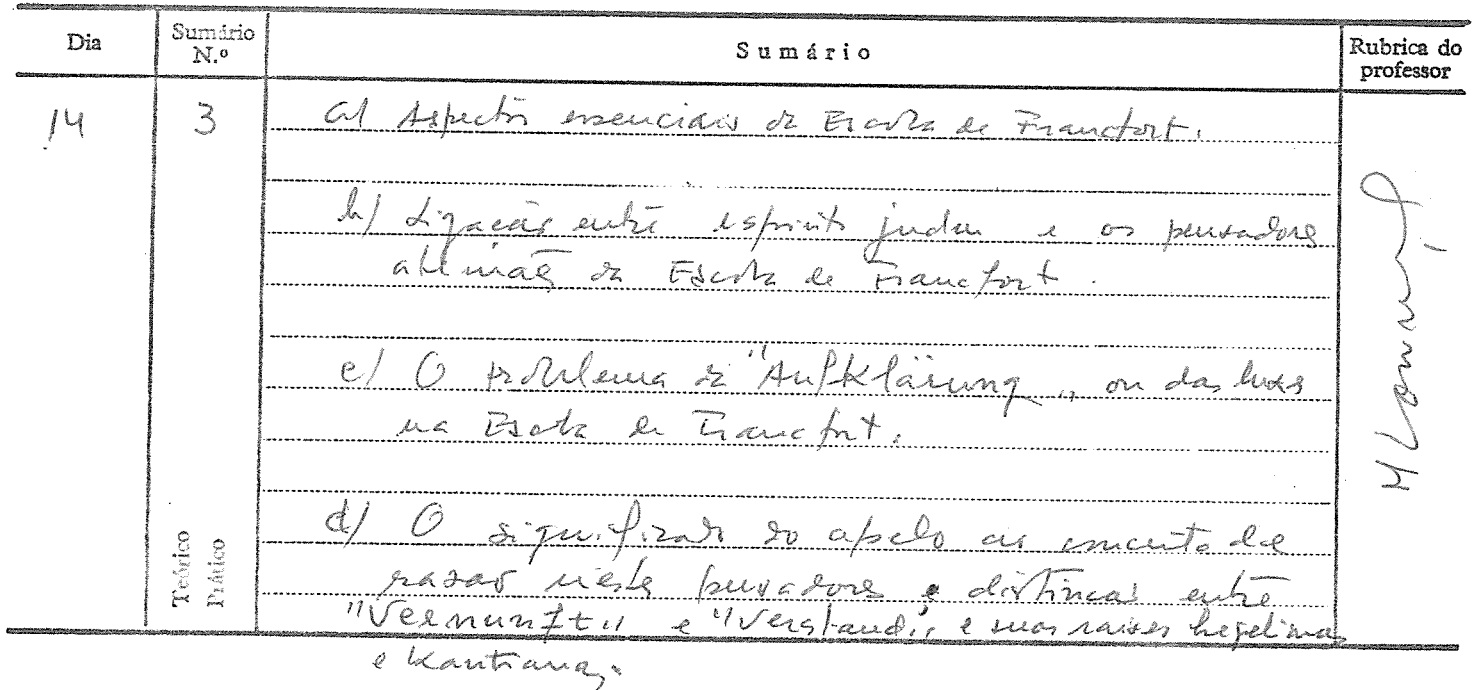 Dia Sumário N.º Sumário Rubrica do professor
14 3 a) Aspectos essenciais da Escola de Francfort.
b) Ligação entre espírito judeu e os pensadores
alemães da Escola de Francfort.
c) O problema da "Aufklärung" ou das luzes
na Escola de Francfort.
d) O significado do apelo ao conceito de
razão nestes pensadores e distinção entre
"Vernunft" e "Verstand", e suas raízes hegelianas
e Kantianas.
Teórico
Prático